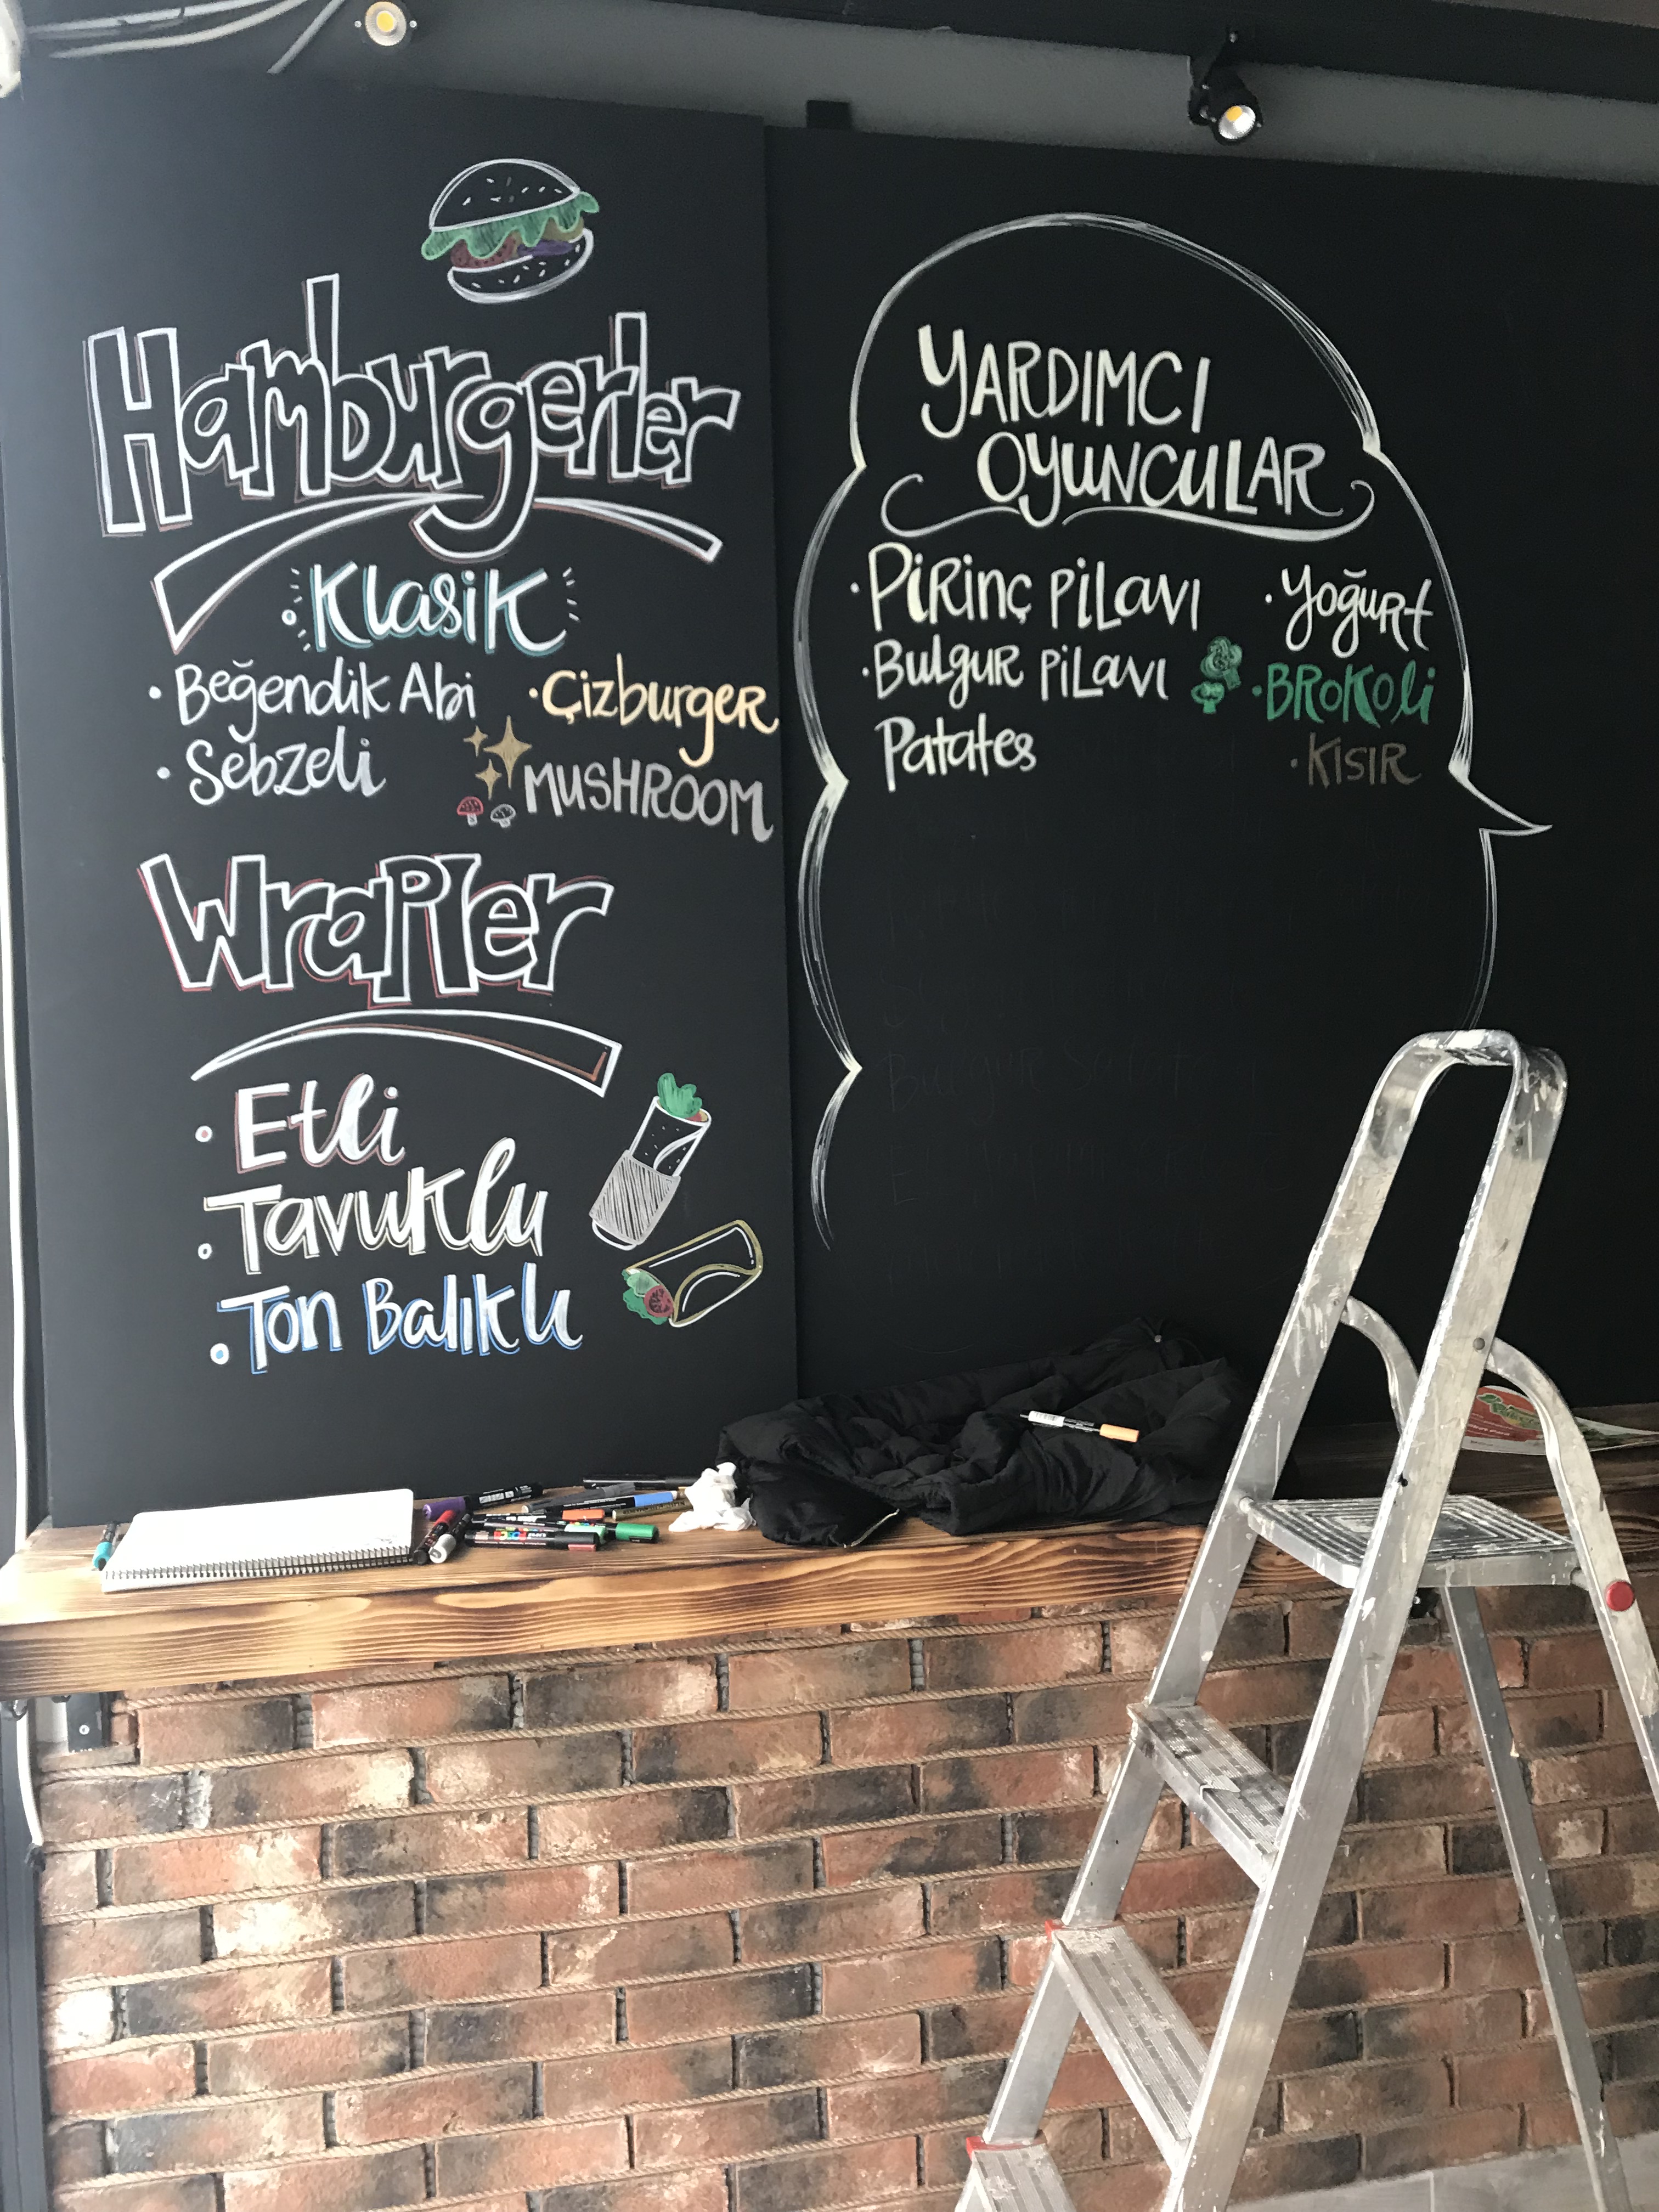 Hamburgerler
• Klasik
• Beğendik Abi
• Çizburger
• Sebzeli
MUSHROOM
Wrapler
• Etli
• Tavuklu
• Ton Balıklı
YARDIMCI
OYUNCULAR
• Pirinç Pilavı
• Yoğurt
• Bulgur Pilavı
• BROKOli
Patates
• KISIR